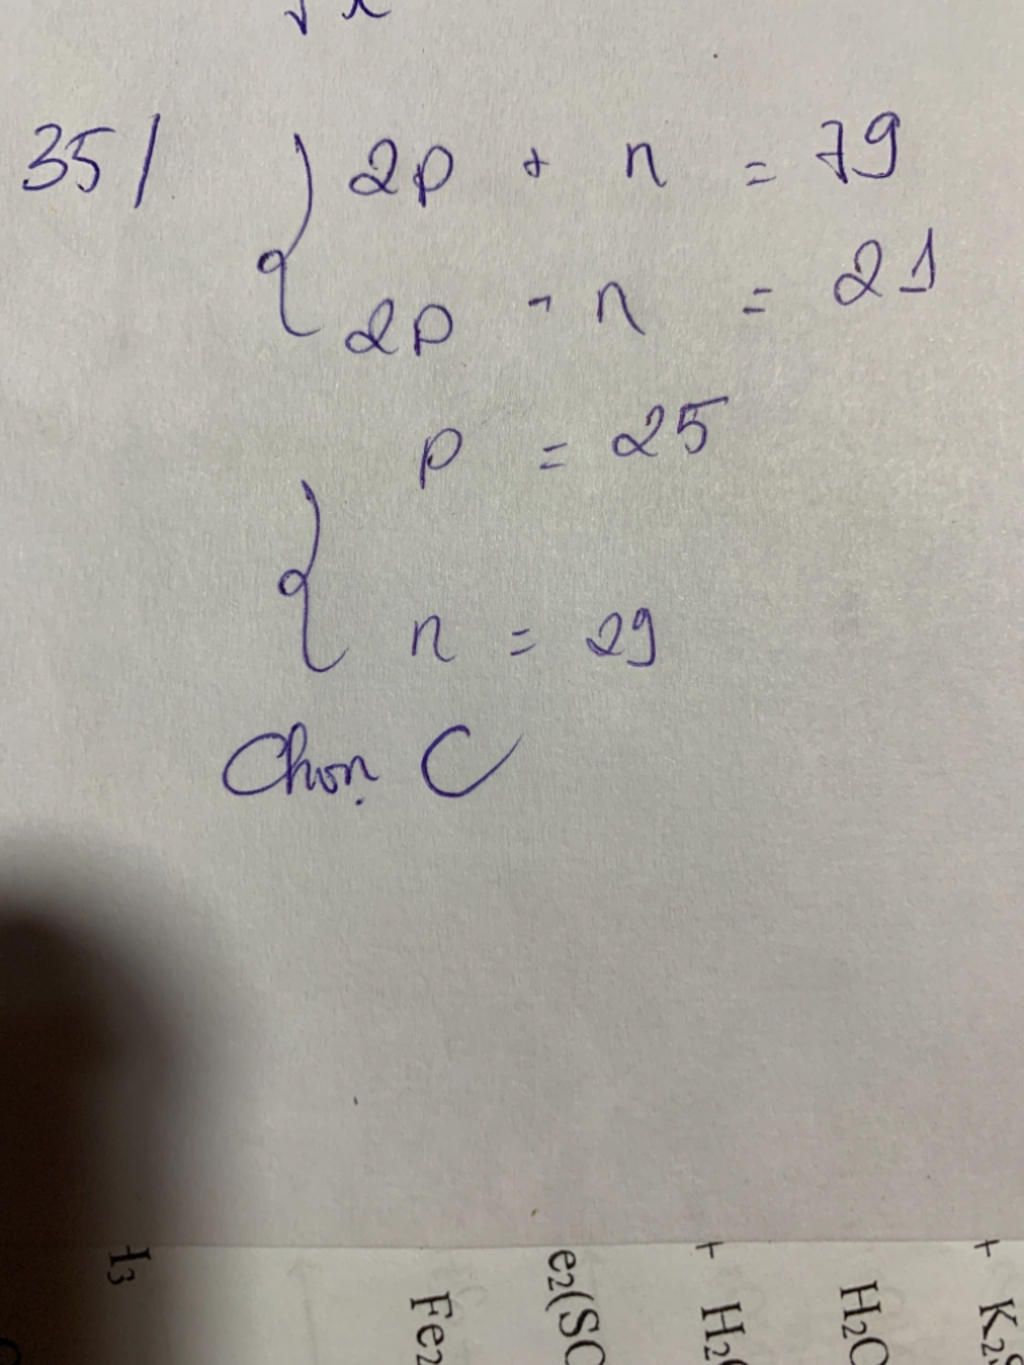 35/ 2p + n = 79
2p - n = 21
p = 25
n = 29
Chọn C
H₂O
Fe₂
e₂(SO
+ H₂O
+ K₂S